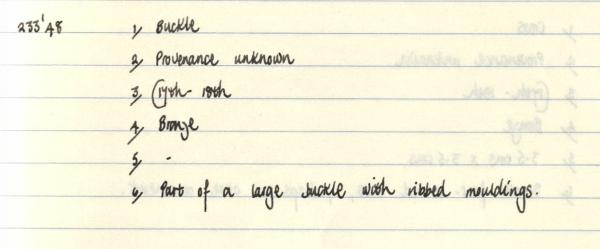 233'48 1, Buckle
2, Provenance unknown
3, (17th - 18th
4, Bronze
5, -
6, Part of a large buckle with ribbed mouldings.